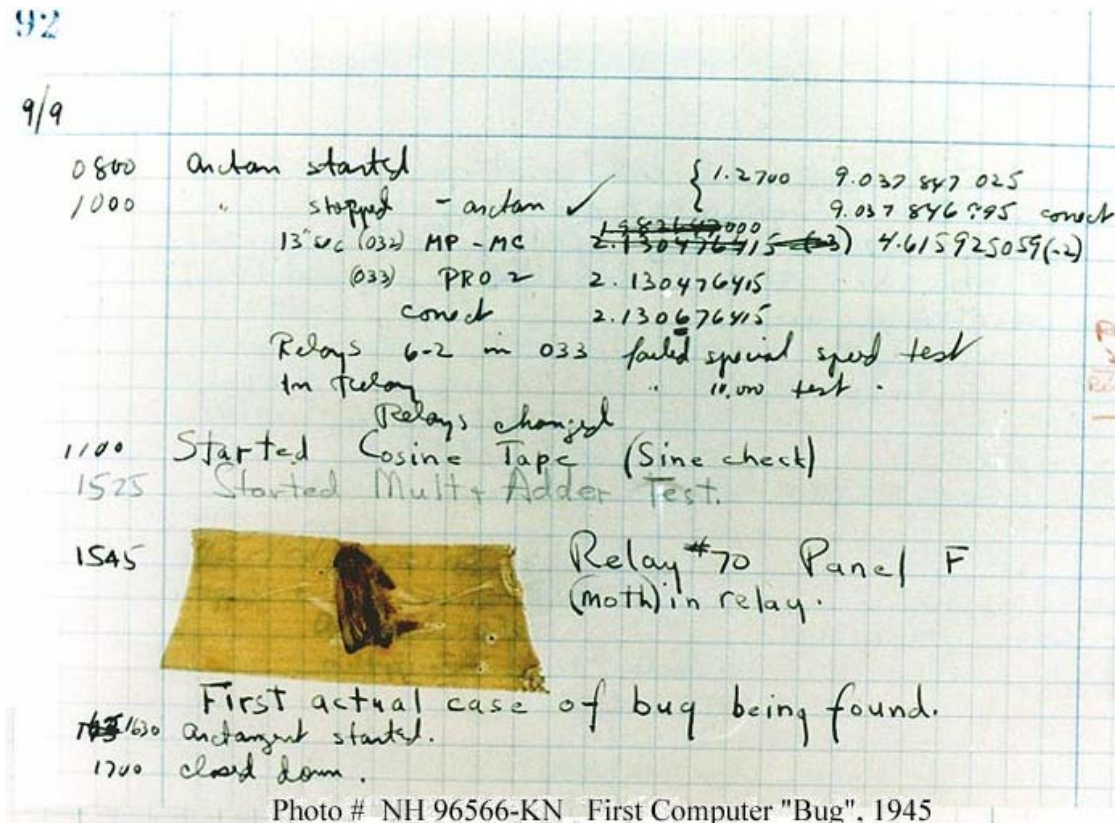 92
9/9
0800 arctan started { 1.2700 9.037 847 025
1000 " stopped - arctan ✓ 9.037 846 795 correct
13" sec (032) MP - MC 2.130476415 (-3) 4.615925059(-2)
(033) PRO 2 2.130476415
correct 2.130676415
Relays 6-2 in 033 failed special speed test
In Relay " 10,000 test .
Relays changed
1100 Started Cosine Tape (Sine check)
1525 Started Mult+ Adder Test.
1545 Relay #70 Panel F
(moth) in relay.
First actual case of bug being found.
1630 arctangent started.
1700 closed down.
Photo # NH 96566-KN First Computer "Bug", 1945